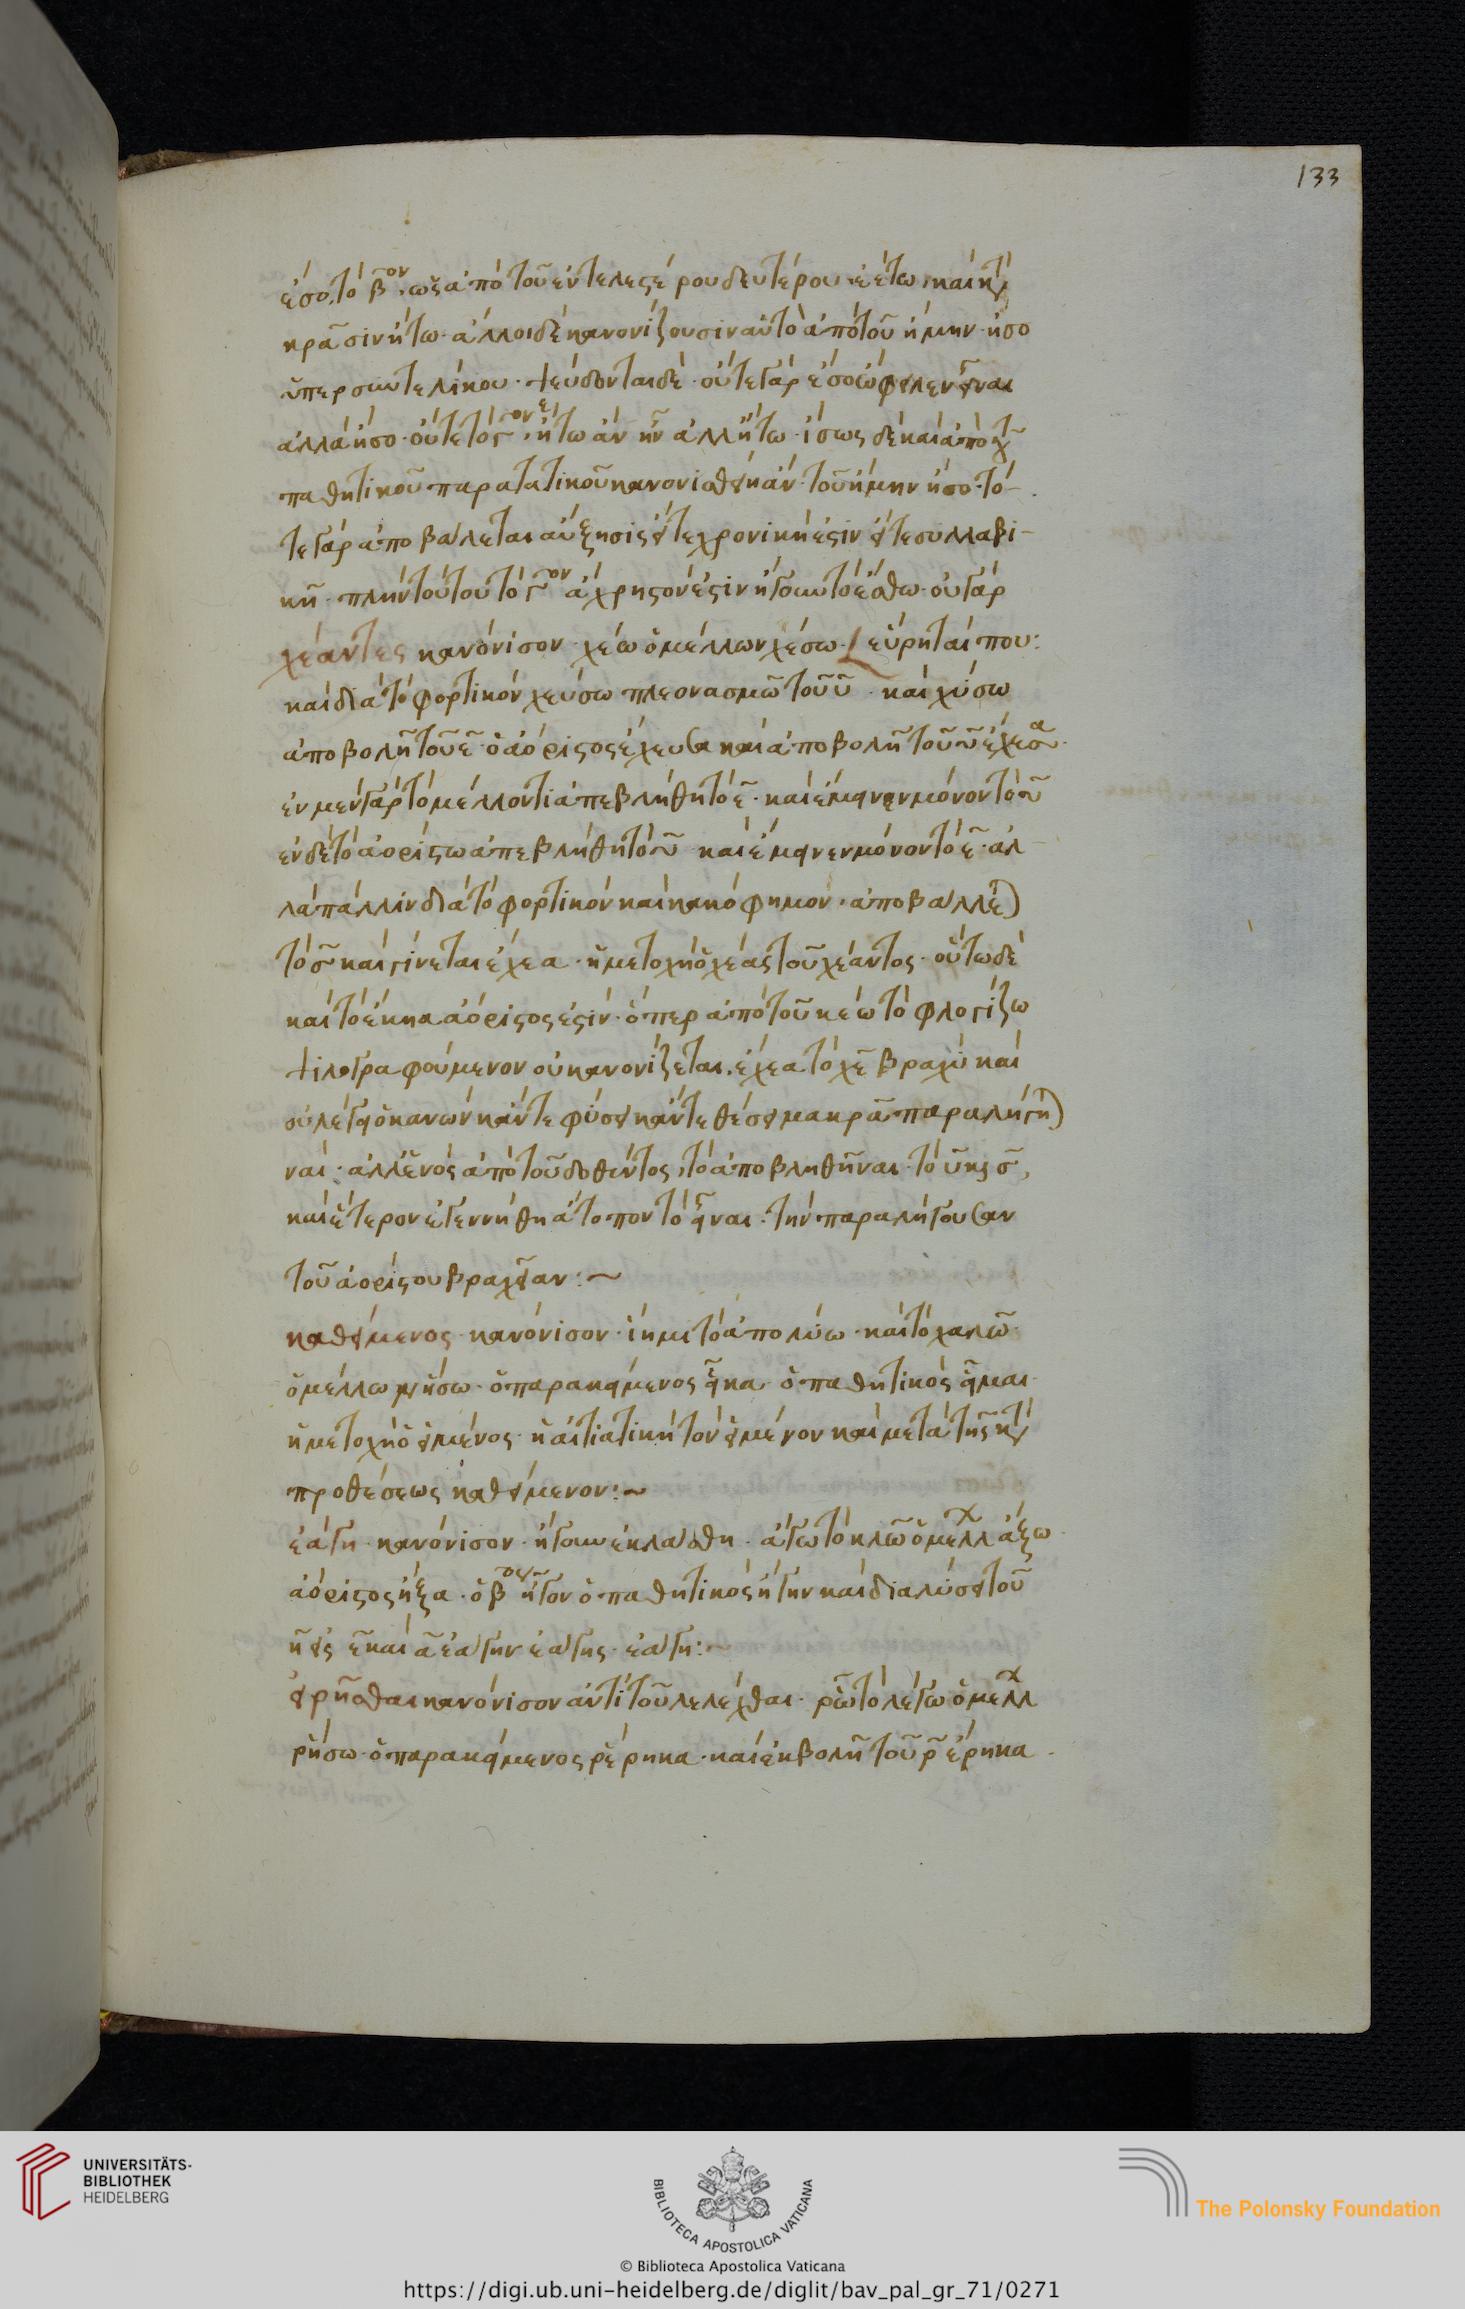 133
ἔσο, τὸ β̅ον. ὡς ἀπὸ τοῦ ἐντελεστέρου δευτέρου. ἐέτω. καὶ κατὰ
κρᾶσιν ἤτω. ἄλλοι δὲ κανονίζουσιν αὐτὸ ἀπὸ τοῦ ἤμην. ἦσο
ὑπερσυντελίκου. ψεύδονται δέ. οὔτε γὰρ ἔσο ὤφειλεν εἶναι
ἀλλὰ ἦσο. οὔτε τὸ γ̅ον ἤτω ἂν ἦν ἀλλ' ἤτω. ἴσως δὲ καὶ ἀπὸ τοῦ
παθητικοῦ παρατατικοῦ κανονισθείη ἄν. τοῦ ἤμην ἦσο. τό
τε γὰρ ἀποβάλεται αὔξησις εἴτε χρονική ἐστιν εἴτε συλλαβι-
κή. πλὴν τούτου τὸ γ̅ον ἄχρηστόν ἐστιν ἤγουν τὸ ἔσθω. οὐ γὰρ
χέαντες κανόνισον. χέω ὁ μέλλων χέσω. εὕρηταί που:
καὶ διὰ τὸ φορτικὸν χεύσω πλεονασμῶ τοῦ υ̅. καὶ χύσω
ἀποβολῇ τοῦ ε̅. ὁ ἀόριστος ἔχευσα καὶ ἀποβολῇ τοῦ υ̅ ἔχεσα.
ἐν μὲν γὰρ τὸ μέλλοντι ἀπεβλήθη τὸ ε̅. καὶ ἔμεινεν μόνον τὸ υ̅
ἐν δὲ τὸ ἀορίστω ἀπεβλήθη τὸ υ̅ καὶ ἔμεινεν μόνον τὸ ε̅. ἀλ-
λὰ πάλλιν διὰ τὸ φορτικὸν καὶ κακόφημον. ἀποβάλλεται
τὸ σ̅ καὶ γίνεται ἔχεα. ἡ μετοχὴ ὁ χέας τοῦ χέαντος. οὕτω δὲ
καὶ τὸ ἔκηα ἀόριστός ἐστιν. ὅπερ ἀπὸ τοῦ κέω τὸ φλογίζω
ψιλογραφούμενον οὐ κανονίζεται. ἔχεα τὸ χε̅ βραχὺ καὶ
οὐ λέγει ὁ κανὼν κἄν τε φύσει κἄν τε θέσει μακρᾶ παραλήγη
ναι. ἀλλ' ἑνὸς ἀπὸ τοῦ δοθέντος, τὸ ἀποβληθῆναι. τὸ υ̅ καὶ σ̅,
καὶ ἕτερον ἐγεννήθη ἄτοπον τὸ εἶναι. τὴν παραλήγουσαν
τοῦ ἀορίστου βραχεῖαν:~
καθειμένος. κανόνισον. ἵημι τὸ ἀπολύω. καὶ τὸ χαλῶ.
ὁ μέλλων ἥσω. ὁ παρακείμενος εἷκα. ὁ παθητικὸς εἷμαι.
ἡ μετοχὴ ὁ εἱμένος. ἡ αἰτιατικὴ τὸν εἱμένον καὶ μετὰ τῆς κατὰ
προθέσεως καθειμένον:~
ἐάγη. κανόνισον. ἤγουν ἐκλάσθη. ἄγω τὸ κλῶ ὁ μέλλ ἄξω
ἀόριστος ἦξα. ὁ β̅ος ἦγον ὁ παθητικὸς ἤγην καὶ διαλύσει τοῦ
η̅ εἰς ε̅ καὶ α̅ ἐάγην ἐάγης. ἐάγη:~
εἰρῆσθαι κανόνισον ἀντὶ τοῦ λελέχθαι. ῥῶ τὸ λέγω ὁ μέλλ
ῥήσω. ὁ παρακείμενος ῥέρηκα. καὶ ἐκβολῇ τοῦ ρ̅ ἔρηκα.
UNIVERSITÄTS-
BIBLIOTHEK
HEIDELBERG
BIBLIOTECA APOSTOLICA VATICANA
The Polonsky Foundation
© Biblioteca Apostolica Vaticana
https://digi.ub.uni-heidelberg.de/diglit/bav_pal_gr_71/0271